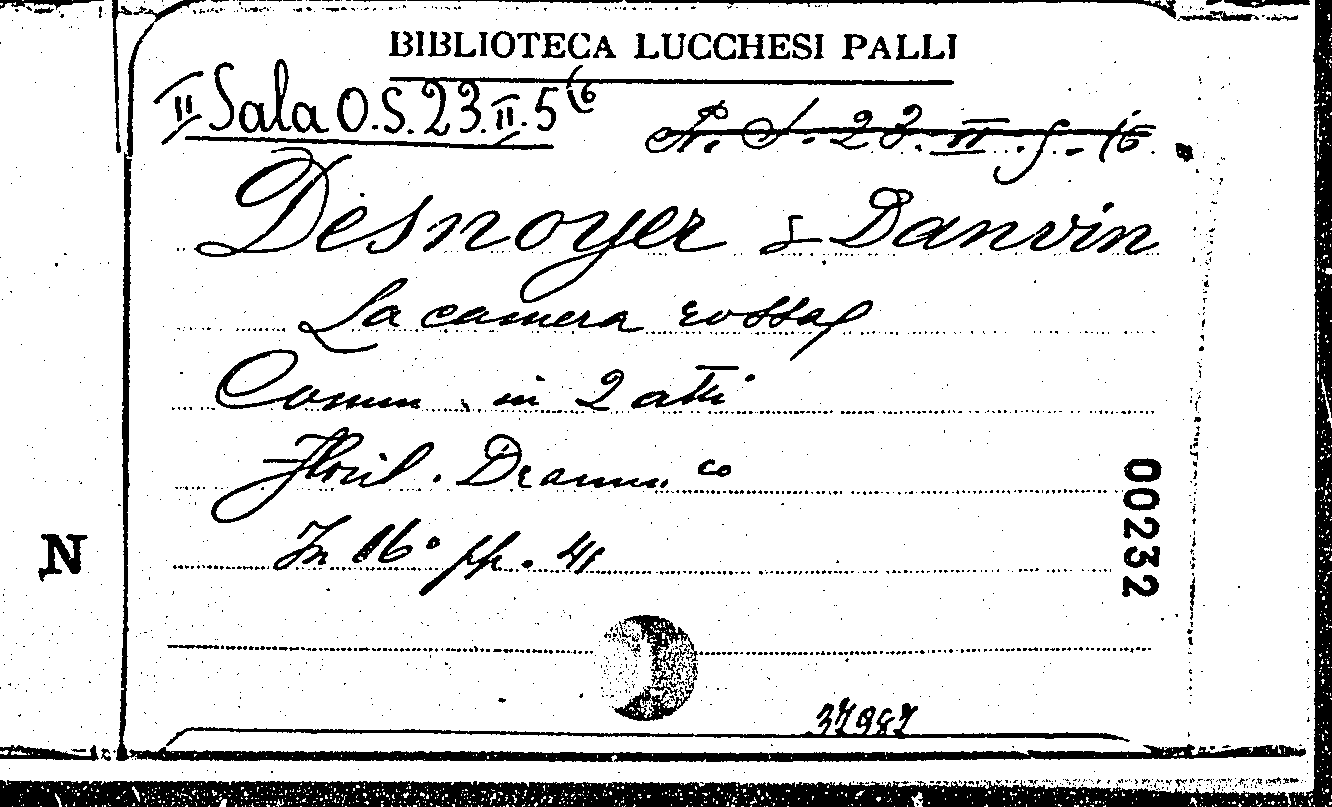 BIBLIOTECA LUCCHESI PALLI
II Sala O.S. 23. II. 5 (6
A. S. 23. II. 5. (6
Desnoyer & Danvin
La camera rossa
Comm. in 2 atti
Floril. Dramm.co
In 16° pp. 41
N
00232
37987